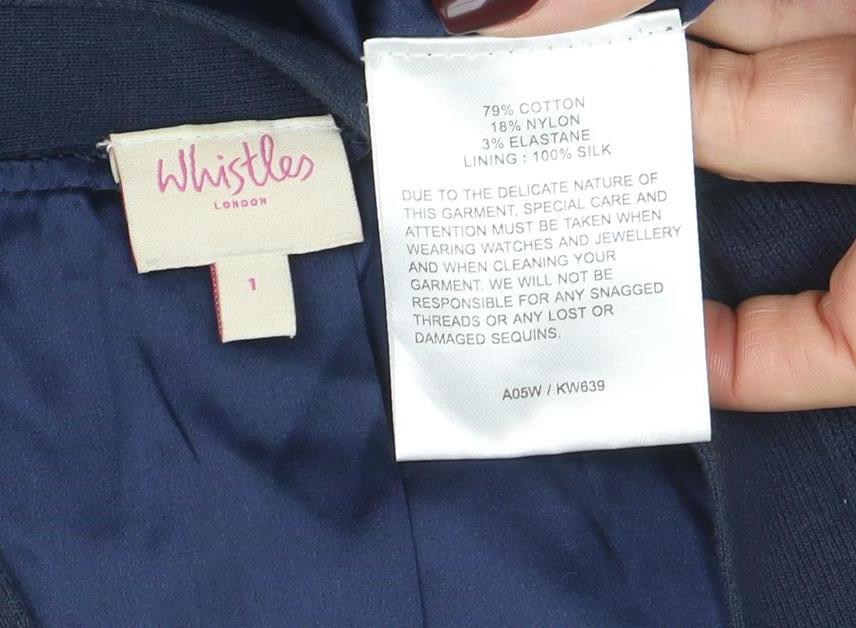 Whistles
LONDON
1
79% COTTON
18% NYLON
3% ELASTANE
LINING : 100% SILK
DUE TO THE DELICATE NATURE OF
THIS GARMENT, SPECIAL CARE AND
ATTENTION MUST BE TAKEN WHEN
WEARING WATCHES AND JEWELLERY
AND WHEN CLEANING YOUR
GARMENT. WE WILL NOT BE
RESPONSIBLE FOR ANY SNAGGED
THREADS OR ANY LOST OR
DAMAGED SEQUINS.
A05W / KW639